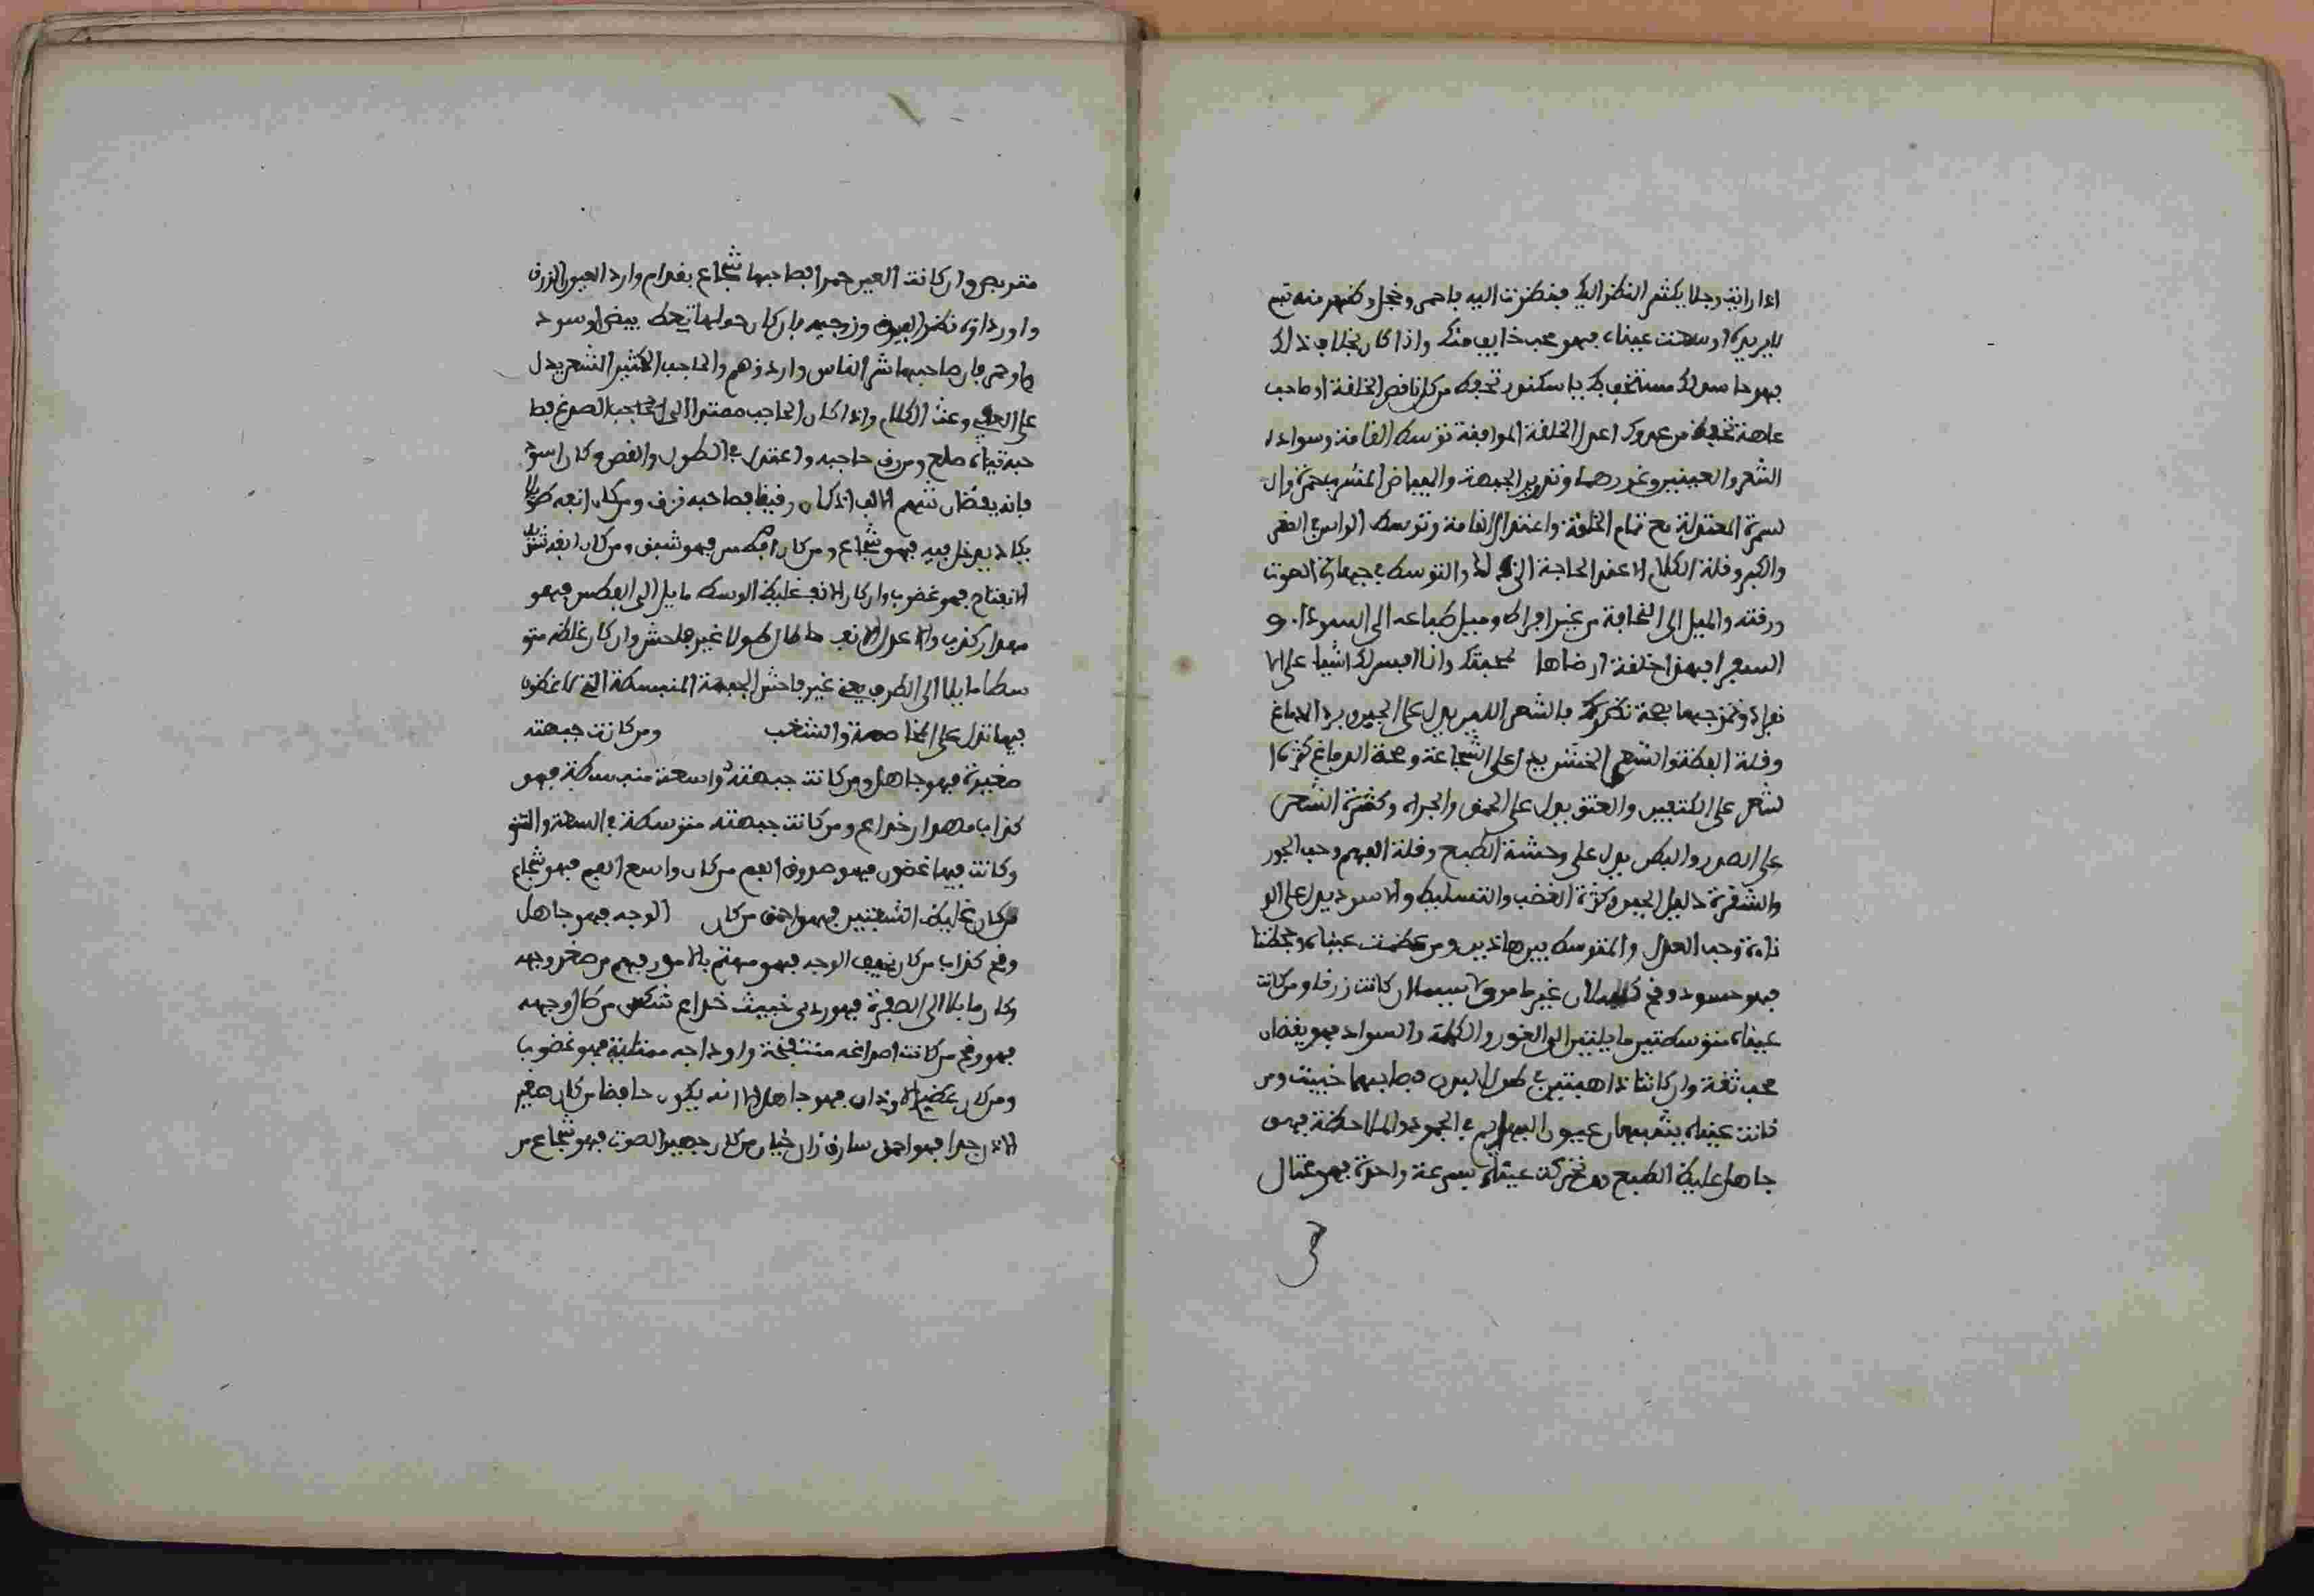 اذا رايت رجلا يكثر النظر اليك فنظرت اليه فاحمر وخجل وظهر منه تبسم
لا يريده او دمعت عيناه فهو محب خايف منك واذا كان بخلاف ذلك
فهو حاسد لك مستخف بك يا سكندر تحفظ من كل ناقص الخلقة او صاحب
عاهة تحفظك من عدوك اعدل الخلقة الموافقة توسط القامة وسواد ا
الشعر والعينين وغورهما وتدوير الجبهة والبياض المشرب بحمرة وال
لسمرة المعتدلة مع تمام الخلقة واعتدال القامة وتوسط الراس في الصغر
والكبر وقلة الكلام الا عند الحاجة الى ذلك والتوسط في جهارة الصوت
ورقته والميل الى النحافة من غير افراط وميل طباعه الى السوداء و
الصفرا فهذه خلقة ارضاها لصحبتك وانا افسر لك اشيا على الا
نفراد وتمزجها بصحة نظرك فالشعر اللين يدل على الجبن وبرد الدماغ
وقلة الفطنة والشعر الخشن يدل على الشجاعة وصحة الدماغ كثرة ا
لشعر على الكتفين والعنق يدل على الحمق والجراة وكثرة الشعر
على الصدر والبطن يدل على وحشة الطبع وقلة الفهم وحب الجور
والشقرة دليل الجبن وكثرة الغضب والتسليط والاسود يدل على الا
ناءة وحب العدل والمتوسط بين هاذين ومن عظمت عيناه وجحظتا
فهو حسود وقح كسلان غير مامون لا سيما ان كانت زرقا ومن كانت
عيناه متوسطتين مايلتين الى الغور والكحلة والسواد فهو يقضان
محب ثقة وان كانتا ذاهبتين في طول البدن فصاحبهما خبيث ومن
كانت عيناه يشبهان عيون البهايم في الجمود والملاحظة فهو
جاهل غليظ الطبع ومن تحركت عيناه بسرعة واحدة فهو محتال
متربص وان كانت العين حمرا فصاحبها شجاع مقدام واردا العيون الزرق
واورداة فان كان حولها نقط بيض او سود
او حمر فان صاحبها شر الناس وارداهم والحاجب الكثير الشعر يدل
على العي وغث الكلام واذا كان الحاجب ممتدا الى الصدغ فصا
حبه تياه صلع ومن رق حاجبه واعتدل في الطول والقصر وكان اسود
فانه يقضان شهم الانف اذا كان رقيقا فصاحبه نزق ومن كان انفه طويلا
يكاد يدخل فيه فهو شجاع ومن كان افطس فهو شبق ومن كان انفه شديد
الانفتاح فهو غضوب وان كان الانف غليظ الوسط مايل الى الفطس فهو
مهذار كذوب واعدل الانف ما طال طولا غير فاحش وان كان غلظه متو
سطا مايلا الى الطرف غير فاحش الجبهة المنبسطة التي لا غضون
فيها تدل على المخاصمة والشغب ومن كانت جبهته
صغيرة فهو جاهل ومن كانت جبهته واسعة منبسطة فهو
كذاب مهدار خداع ومن كانت جبهته متوسطة في السعة والنتو
وكانت فيها غضون فهو صدوق الفم من كان واسع الفم فهو شجاع
من كان غليظ الشفتين فهو احمق من كان الوجه فهو جاهل
وقح كذاب من كان نحيف الوجه فهو مهتم بالامور فهم من صغر وجهه
وكان مايلا الى الصفرة فهو ردي خبيث خداع شكس من طال وجهه
فهو وقح من كانت اصداغه منتفخة واوداجه ممتلية فهو غضوب
ومن كان عظيم الاذان فهو جاهل الا انه يكون حافظا من كان صغير
الاذن جدا فهو احمق سارق زان خباز من كان جهير الصوت فهو شجاع من